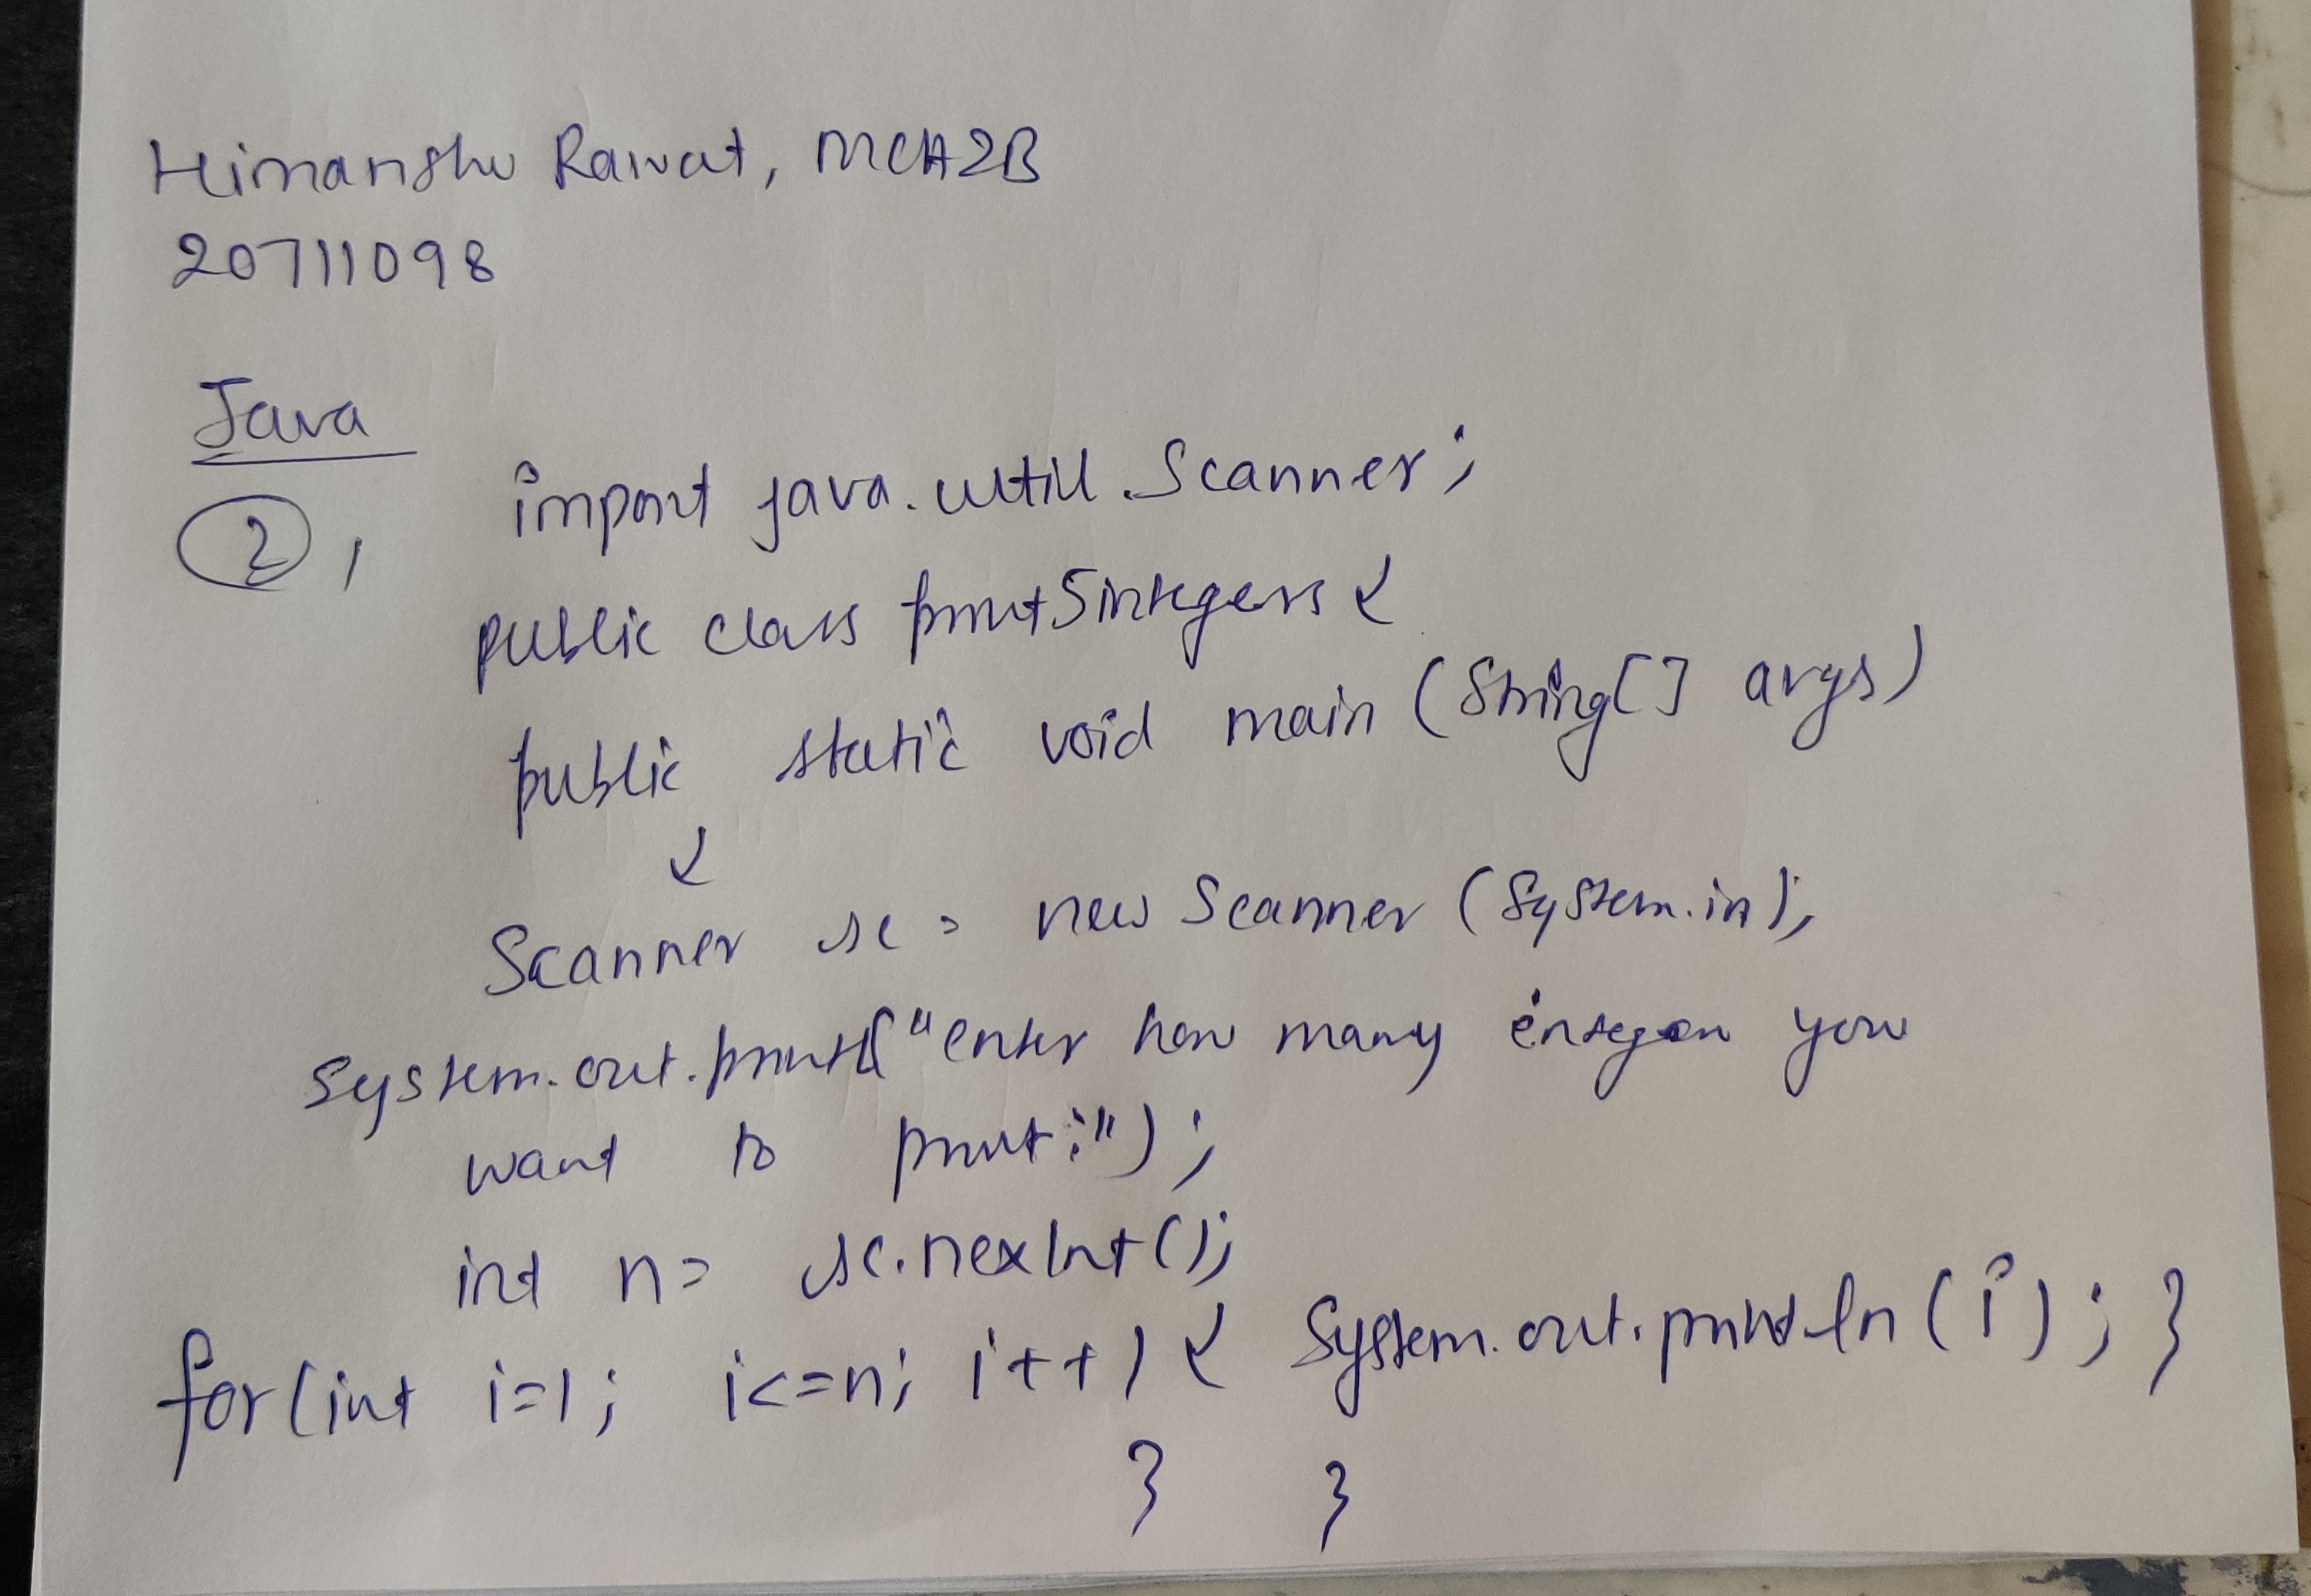 Himanshu Rawat, MCA2B
20711098
Java
2, import java.util.Scanner;
public class print5integers {
public static void main (String[] args)
{
Scanner sc = new Scanner (System.in);
System.out.print("enter how many you
want to print:");
int n= sc.nexInt();
for(int i=1; i<=n; i++) { System.out.println(i); }
} }